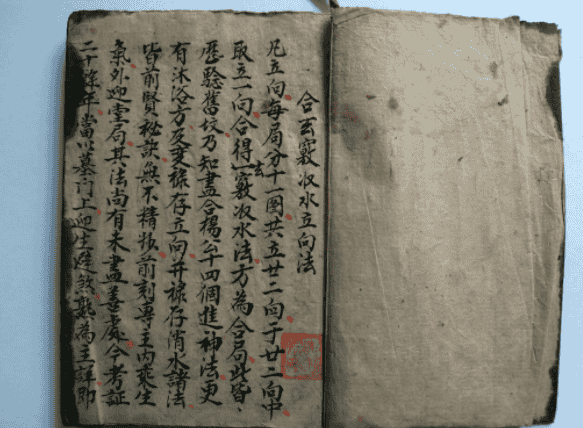 合玄竅收水立向法
凡立向每局分十一图共立廿二向于廿二向中
取立一向合得一玄竅收水法方為合局此皆
歷驗舊坟乃知盡合楊公十四個進神法更
有沐浴方及变祿存立向并祿存消水諸法
皆前賢秘訣無不精打前刻專主內乘生
氣外迎堂局其法尚有未盡善處今考証
二十馀年當以墓门上迎生避煞孰為王詳即